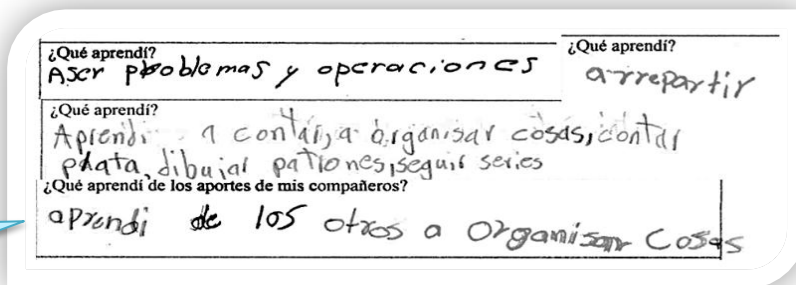 ¿Qué aprendí?
Aser problemas y operaciones
¿Qué aprendí?
arrepartir
¿Qué aprendí?
Aprendi a contar, a organisar cosas, contar
plata, dibujar patrones, seguir series
¿Qué aprendí de los aportes de mis compañeros?
aprendi de los otros a organisar cosas